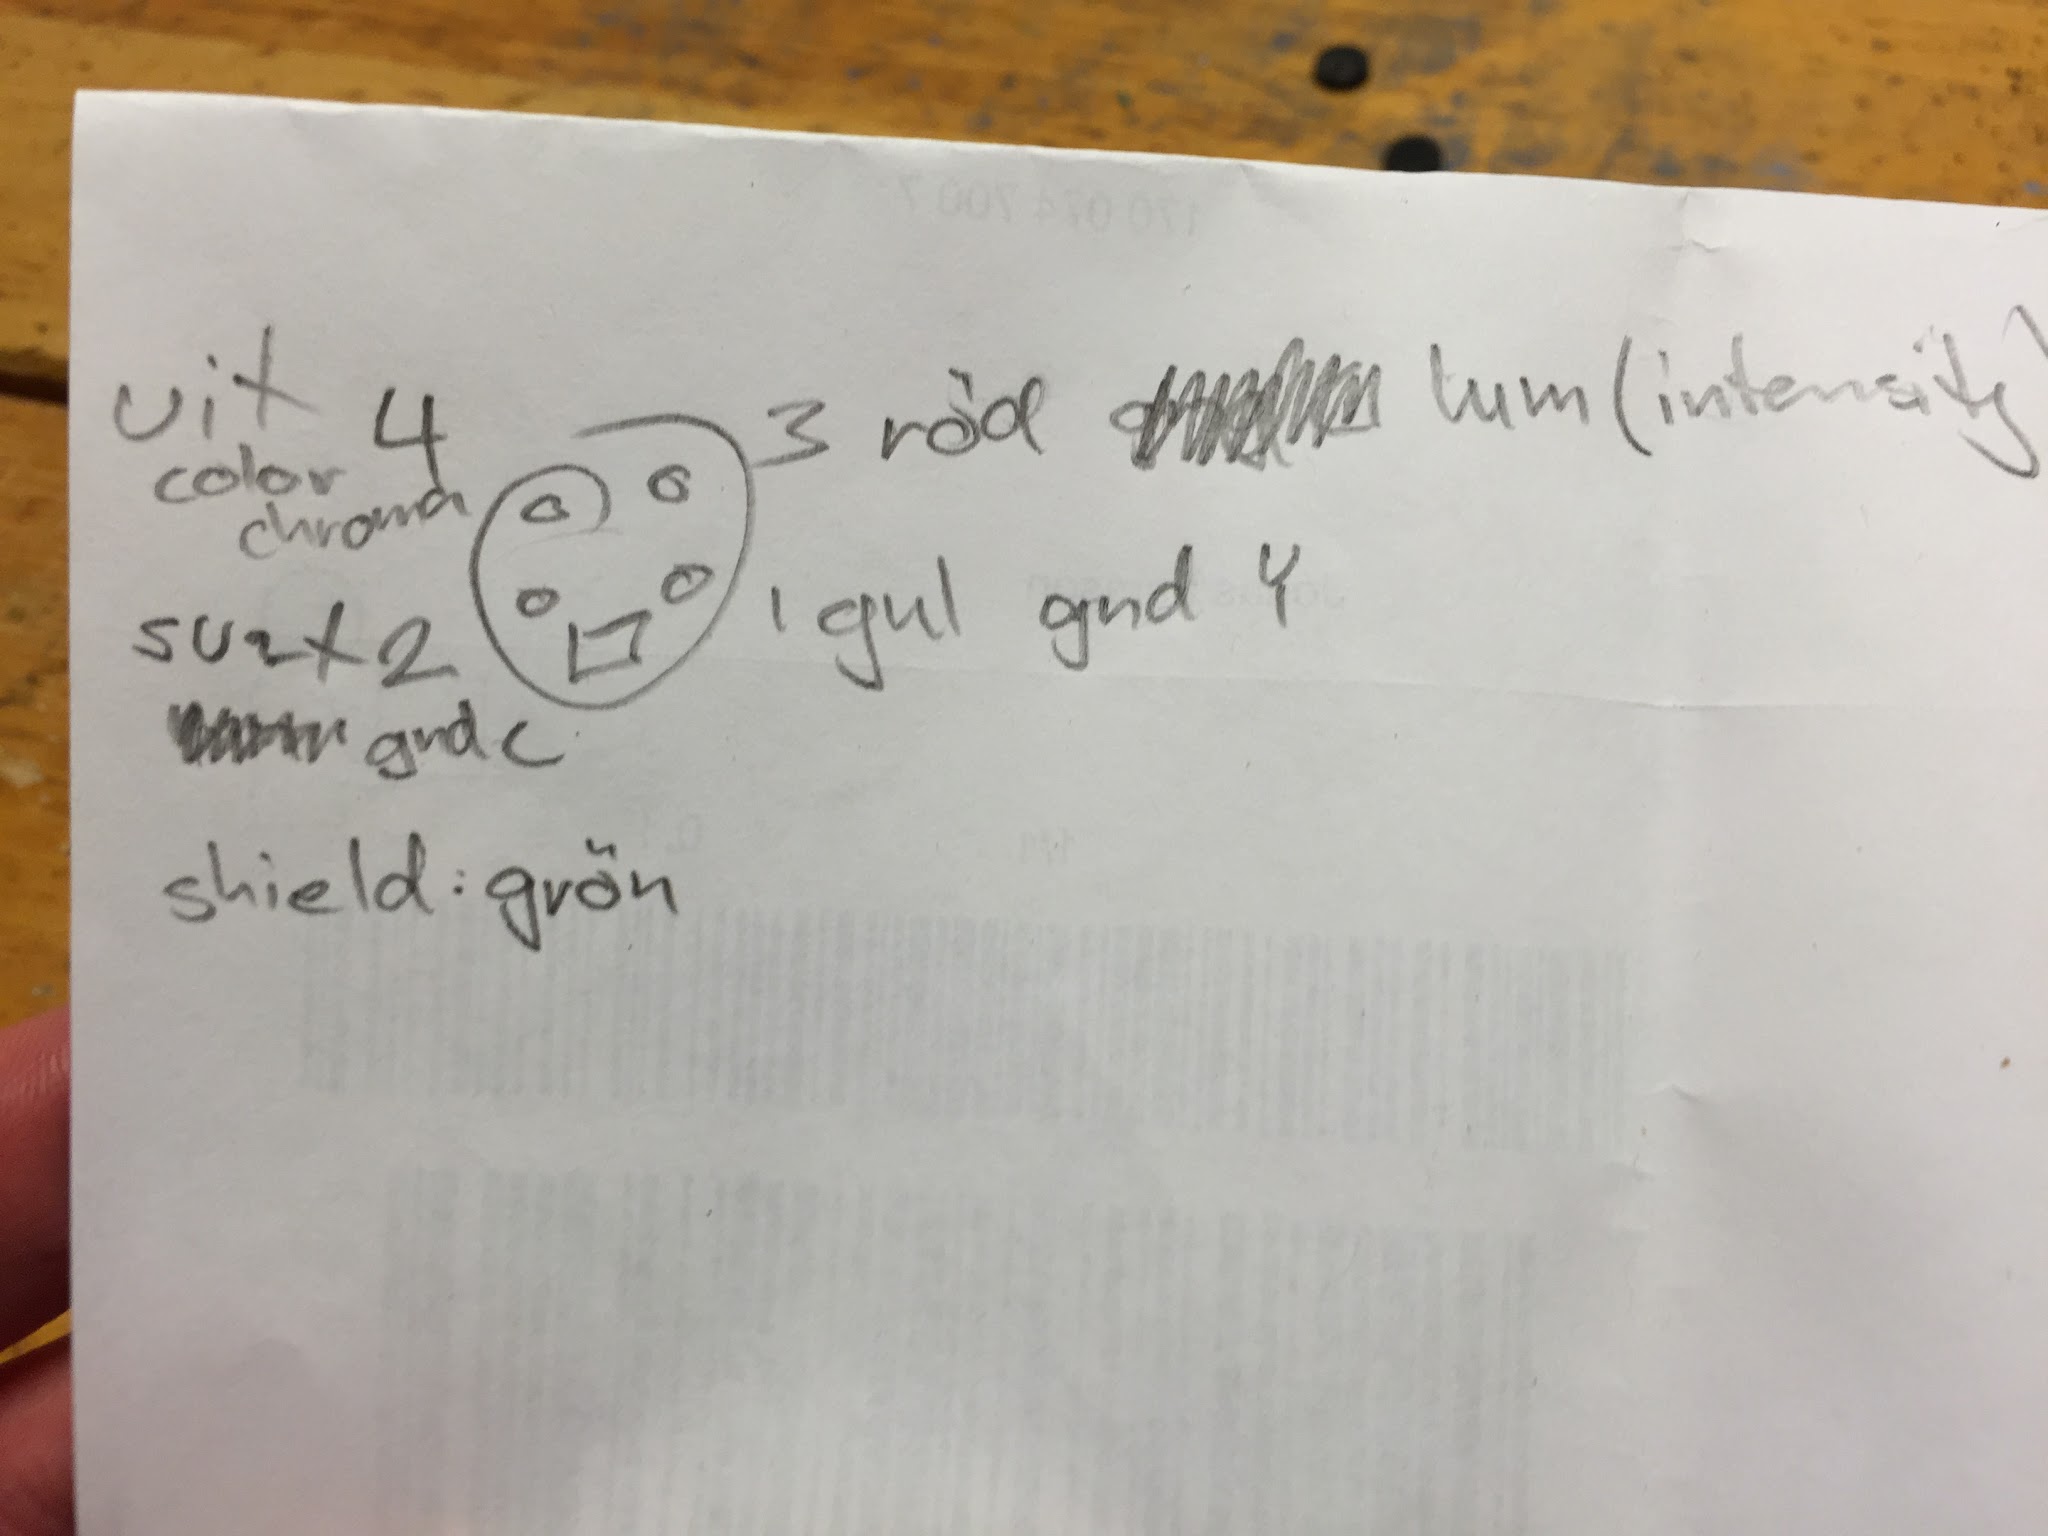 vit 4
color
chroma
3 röd lum (intensity)
1 gul gnd Y
svart 2
gnd c
shield: grön
170 074 700 7